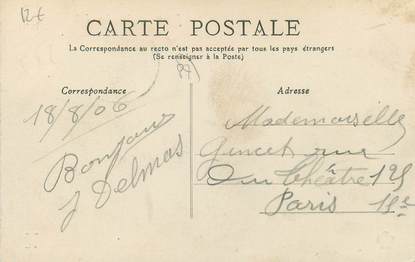 12€
CARTE POSTALE
La Correspondance au recto n'est pas acceptée par tous les pays étrangers
(Se renseigner à la Poste)
Correspondance
Adresse
18/8/06
Bonjour
J Delmas
Mademoiselle
Gincet rue
Du Théâtre 125
Paris 15e